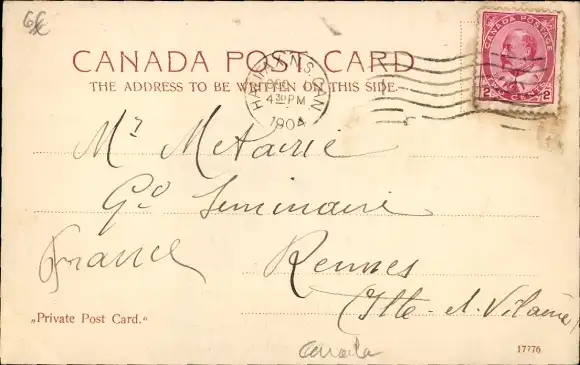 CANADA POSTAGE
2 TWO CENTS 2
CANADA POST CARD
THE ADDRESS TO BE WRITTEN ON THIS SIDE.
HALIFAX N.S. CAN.
4 30 PM
1904
Mr Métairie
Gd Séminaire
France
Rennes
(Ille-et-Vilaine)
„Private Post Card."
Canada
17776